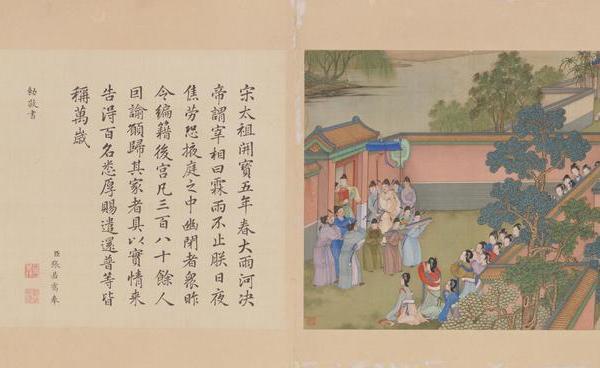 宋太祖開寶五年春大雨河决
帝謂宰相曰霖雨不止朕日夜
焦勞恐掖庭之中幽閉者衆昨
令編籍後宮凡三百八十餘人
因諭願歸其家者具以實情來
告得百名悉厚賜遣還普等皆
稱萬歲
臣張若靄奉
勅敬書